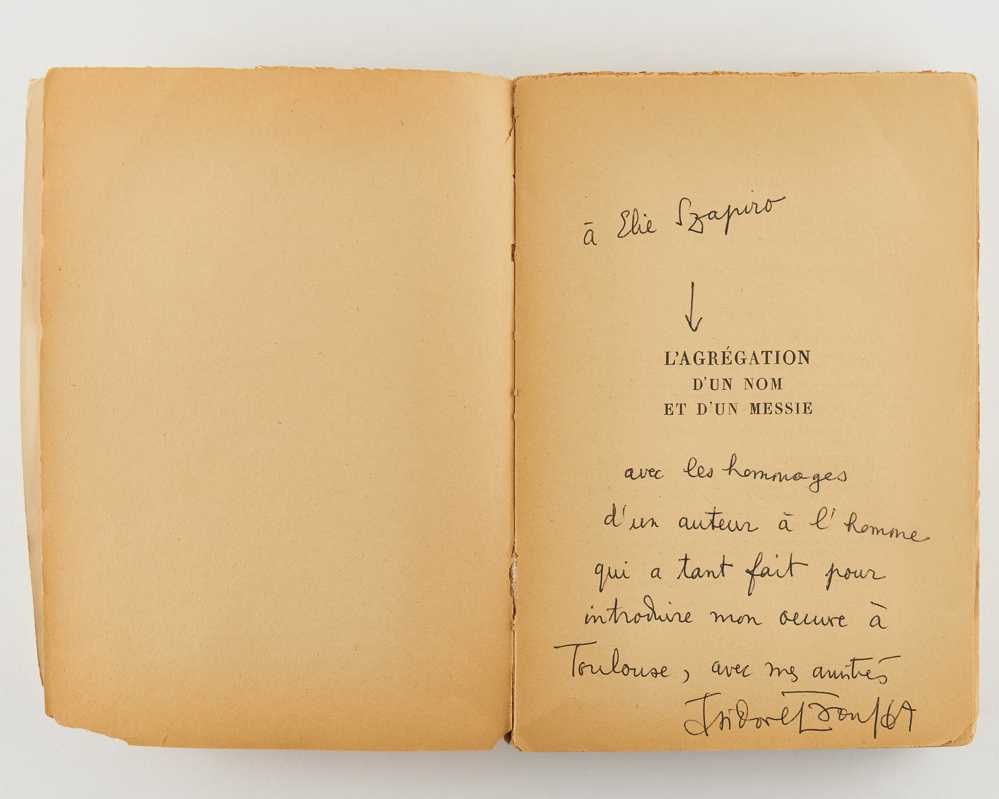 à Elie Szapiro
↓
L'AGRÉGATION
D'UN NOM
ET D'UN MESSIE
avec les hommages
d'un auteur à l'homme
qui a tant fait pour
introduire mon oeuvre à
Toulouse, avec mes amitiés
Isidore